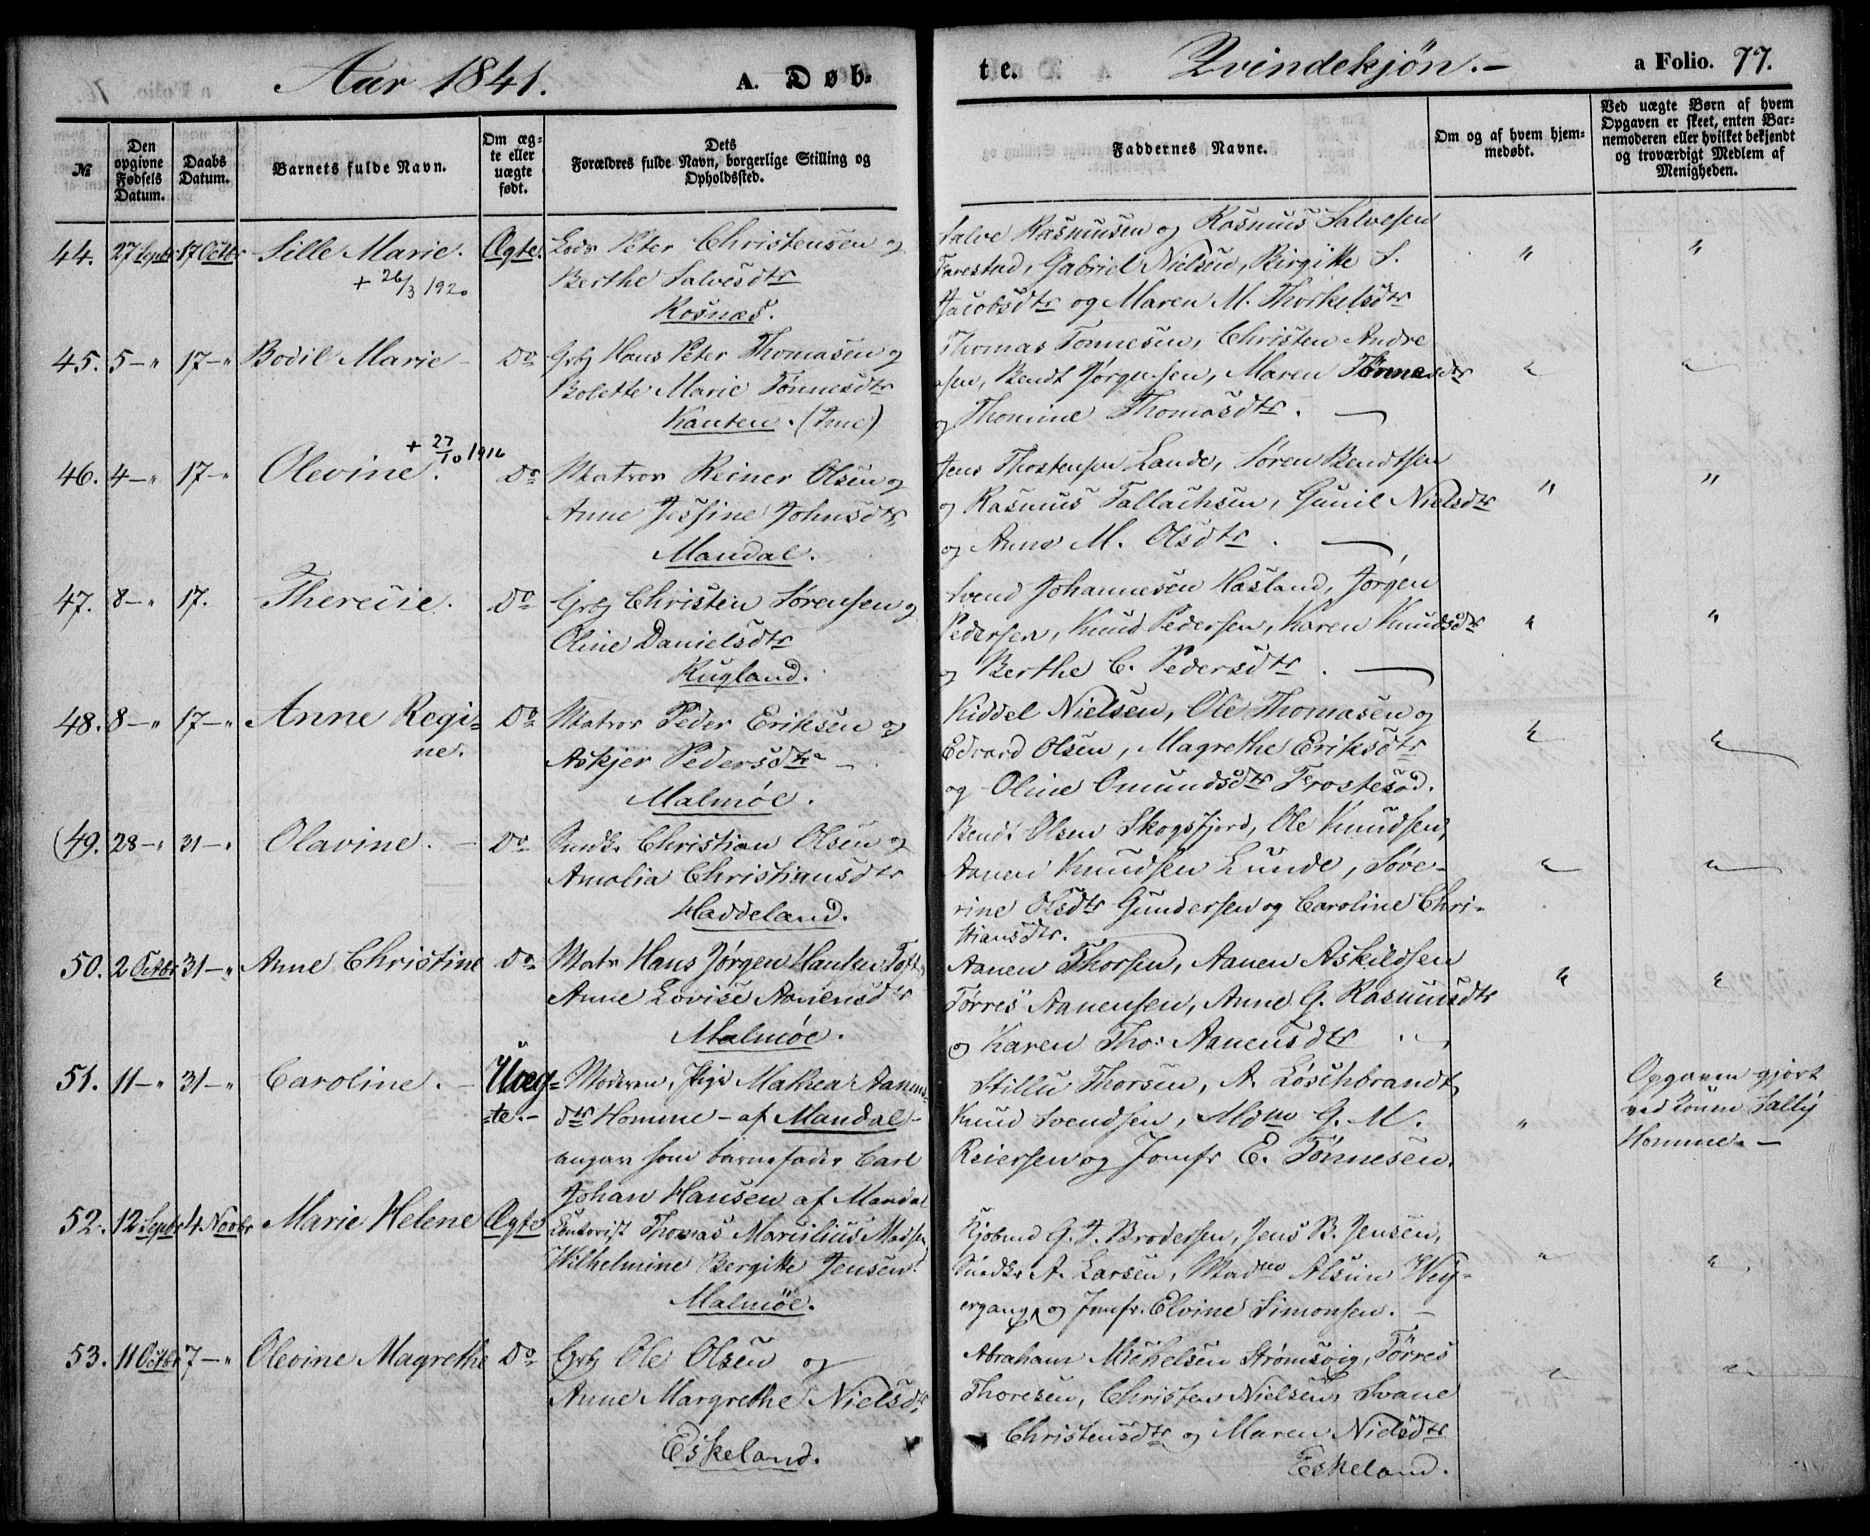 Aar 1841. A. Døb-
te. Qvindekjøn.- a Folio. 77.
№ Den opgivne Fødsels Datum. Daabs Datum. Barnets fulde Navn. Om ægte eller uægte født. Dets Forældres fulde Navn, borgerlige Stilling og Opholdssted. Faddernes Navne. Om og af hvem hjemmedøbt. Ved uægte Børn af hvem Opgaven er skeet, enten Barnemoderen eller hvilket bekjendt og troværdigt Medlem af Menigheden.
44. 27 Septr 17 Octbr Sille Marie. Ægte. Lods Peter Christensen og
+ 26/3 1920 Berthe Salvesdtr
Rosnæs.
Salve Rasmusen og Rasmus Salvesen
Farestad, Gabriel Nielsen, Birgitte S.
Jacobsdtr og Maren M. Thorkelsdtr
" "
45. 5 - " 17 - " Bodil Marie - Do Grbj Hans Peter Thomasen og
Bolette Marie Tønnesdtr
Kauten. (Ime)
Thomas Tønnesen, Christen Andre
asen, Bendt Jørgensen, Maren Tønnesdtr
og Thomine Thomasdtr. —
" "
46. 4 - " 17 - " Olevine. + 27/10 1916 Do Matros Reiner Olsen og
Anne Jessine Johnsdtr
Mandal.
Jens Thostensen Lande, Søren Bendtsen
og Rasmus Tallachsen, Gunil Nielsdtr
og Anne M. Olsdtr. —
" "
47. 8 - " 17. Therecie. Do Grbj Christen Sørensen og
Oline Danielsdtr
Rugland.
Svend Johannesen Hasland, Jørgen
Pedersen, Knud Pedersen, Karen Knudsdtr
og Berthe C. Pedersdtr. —
" "
48. 8 - " 17 - " Anne Regi-
ne. Do Matros Peder Eriksen og
Askjer Pedersdtr -
Malmøe.
Kiddel Nielsen, Ole Thomasen og
Edvard Olsen, Magrethe Eriksdtr
og Oline Omundsdtr Frostesød.
" "
(49. 28 - " 31 - " Olavine. - Do Snedk. Christian Olsen og
Amalia Christiansdtr
Haddeland.
Bendt Olsen Skogsfjord, Ole Knudsen,
Aanen Knudsen Lunde, Seve-
rine Olsdtr Gundersen og Caroline Chri-
stiansdtr.
" "
50. 2 Octbr 31 - " Anne Christine Do Matr Hans Jørgen Hansen Toft
Anne Lovise Aanensdtr
Malmøe.
Aanen Thorsen, Aanen Askildsen
Tørres Aanensen, Anne G. Rasmusdtr
og Karen Tho: Aanensdtr
" "
51. 11 - " 31 - " Caroline. - Uæg-
te. - Moderen, Pige Mathea Aanens-
dtr Homme - af Mandal -
angav som barnefader Carl
Johan Hansen af Mandal
Thorsen, A. Løschbrandt,
Knud Svendsen, Mdm G. M.
Reiersen og Jomfr E. Tønnesen.
"
Opgaven gjort
ved Sally
Homme. -
52. 12 Septr 4 Novbr Marie Helene Ægte Contorist Thomas Marcilius Madsen
Wilhelmine Bergitte Jensen
Malmøe.
Kjøbmd G. F. Brodersen, Jens B. Jensen,
Snedkr A. Larsen, Madm Wey-
ergang, og Jomfr. Elvine Simonsen. -
" "
53. 11 Octbr 7 - " Olevine Magrethe Do Grbj Ole Olsen og
Anne Margrethe Nielsdtr
Eskeland.
Abraham Michelsen Strømsvig, Tørres
Thoresen, Christen Nielsen, Svane
Christensdtr og Maren Nielsdtr
Eskeland.
" "